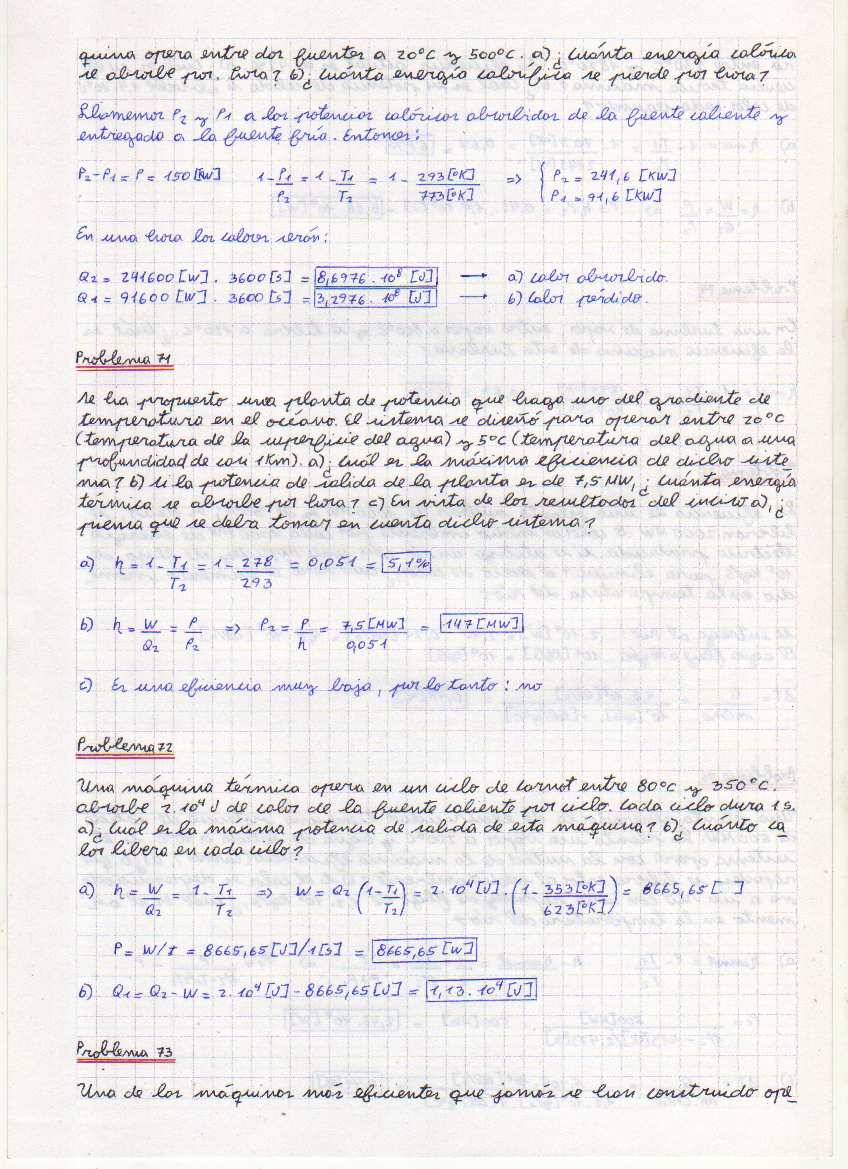 quina opera entre dos fuentes a 20°C y 500°C. a)¿Cuánta energía calórica
se absorbe por hora? b)¿Cuánta energía calorífica se pierde por hora?
Llamemos P2 y P1 a las potencias calóricas absorbidas de la fuente caliente y
entregada a la fuente fría. Entonces:
P2-P1 = P = 150 [KW] 1-P1/P2 = 1-T1/T2 = 1- 293[°K]/773[°K] => { P2 = 241,6 [KW]
P1 = 91,6 [KW]
En una hora los calores serán:
Q2 = 241600 [W] . 3600 [s] = 8,6976 . 10^8 [J] → a) calor absorbido.
Q1 = 91600 [W] . 3600 [s] = 3,2976 . 10^8 [J] → b) calor perdido.
Problema 71
Se ha propuesto una planta de potencia que haga uso del gradiente de
temperatura en el océano. El sistema se diseñó para operar entre 20°C
(temperatura de la superficie del agua) y 5°C (temperatura del agua a una
profundidad de casi 1 Km). a)¿Cuál es la máxima eficiencia de dicho siste
ma? b) Si la potencia de salida de la planta es de 7,5 MW, ¿Cuánta energía
térmica se absorbe por hora? c) En vista de los resultados del inciso a), ¿
piensa que se deba tomar en cuenta dicho sistema?
a) η = 1-T1/T2 = 1-278/293 = 0,051 = 5,1%
b) η = W/Q2 = P/P2 => P2 = P/η = 7,5[MW]/0,051 = 147 [MW]
c) Es una eficiencia muy baja, por lo tanto: no
Problema 72
Una máquina térmica opera en un ciclo de Carnot entre 80°C y 350°C.
absorbe 2.10^4 J de calor de la fuente caliente por ciclo. Cada ciclo dura 1 s.
a)¿Cuál es la máxima potencia de salida de esta máquina? b)¿Cuánto ca
lor libera en cada ciclo?
a) η = W/Q2 = 1-T1/T2 => W = Q2 (1-T1/T2) = 2.10^4 [J] . (1- 353[°K]/623[°K]) = 8665,65 [ ]
P = W/t = 8665,65 [J]/1[s] = 8665,65 [W]
b) Q1 = Q2 - W = 2.10^4 [J] - 8665,65 [J] = 1,13.10^4 [J]
Problema 73
Una de las máquinas más eficientes que jamás se han construido ope